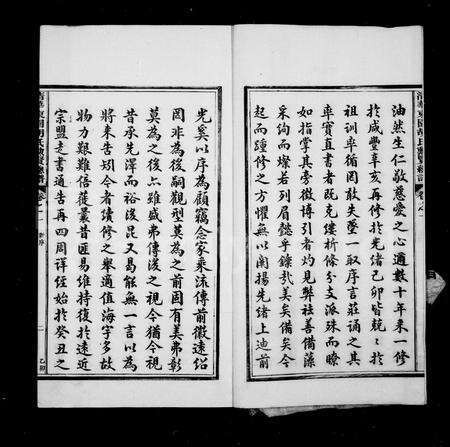 油然生仁敬慈愛之心適數十年來一修
於咸豐辛亥再修於光緒己卯皆競競於
祖訓率循罔敢失墜一取序言莊誦之其
率實直書者既克縷析條分支派珠而瞭
如指掌其旁徵博引者灼見弊祛善備藻
采絢而燦若列眉懿乎鑠哉美矣備矣今
起而踵修之方懼無以闡揚先緒上迪前
光奚以序為顧竊念家乘流傳前徽遠紹
固非為後嗣觀型莫為之前固有美弗彰
莫為之後亦雖盛弗傳後之視今猶今視
昔承先澤而裕後昆又曷能無一言以為
將來告矧今者續修之舉適值海宇多故
物力艱難倍蓰曩昔匪易維持復於遠近
宗盟走書通告再四周詳經始於癸丑之